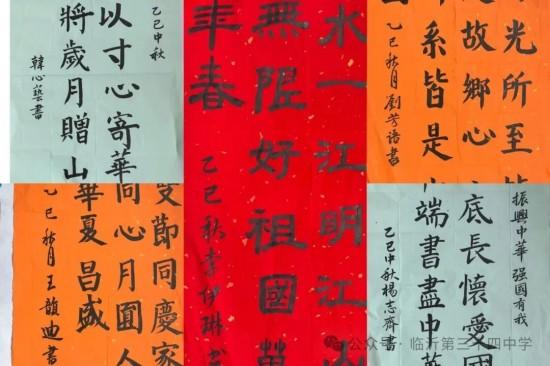 乙巳中秋
以寸心寄華
將歲月贈山
韓心藝書
水一江明江山
無限好祖國萬
年春
乙巳秋李伊琳书
光所至
故鄉心
系皆是
乙巳秋月劉芳語書
節同慶家
同心月圓人
華夏昌盛
乙巳秋月王韻迪書
振興中華 强國有我
底長懷愛國
端書盡中華
乙巳中秋楊志齊書
公众号 · 临沂第三十四中学